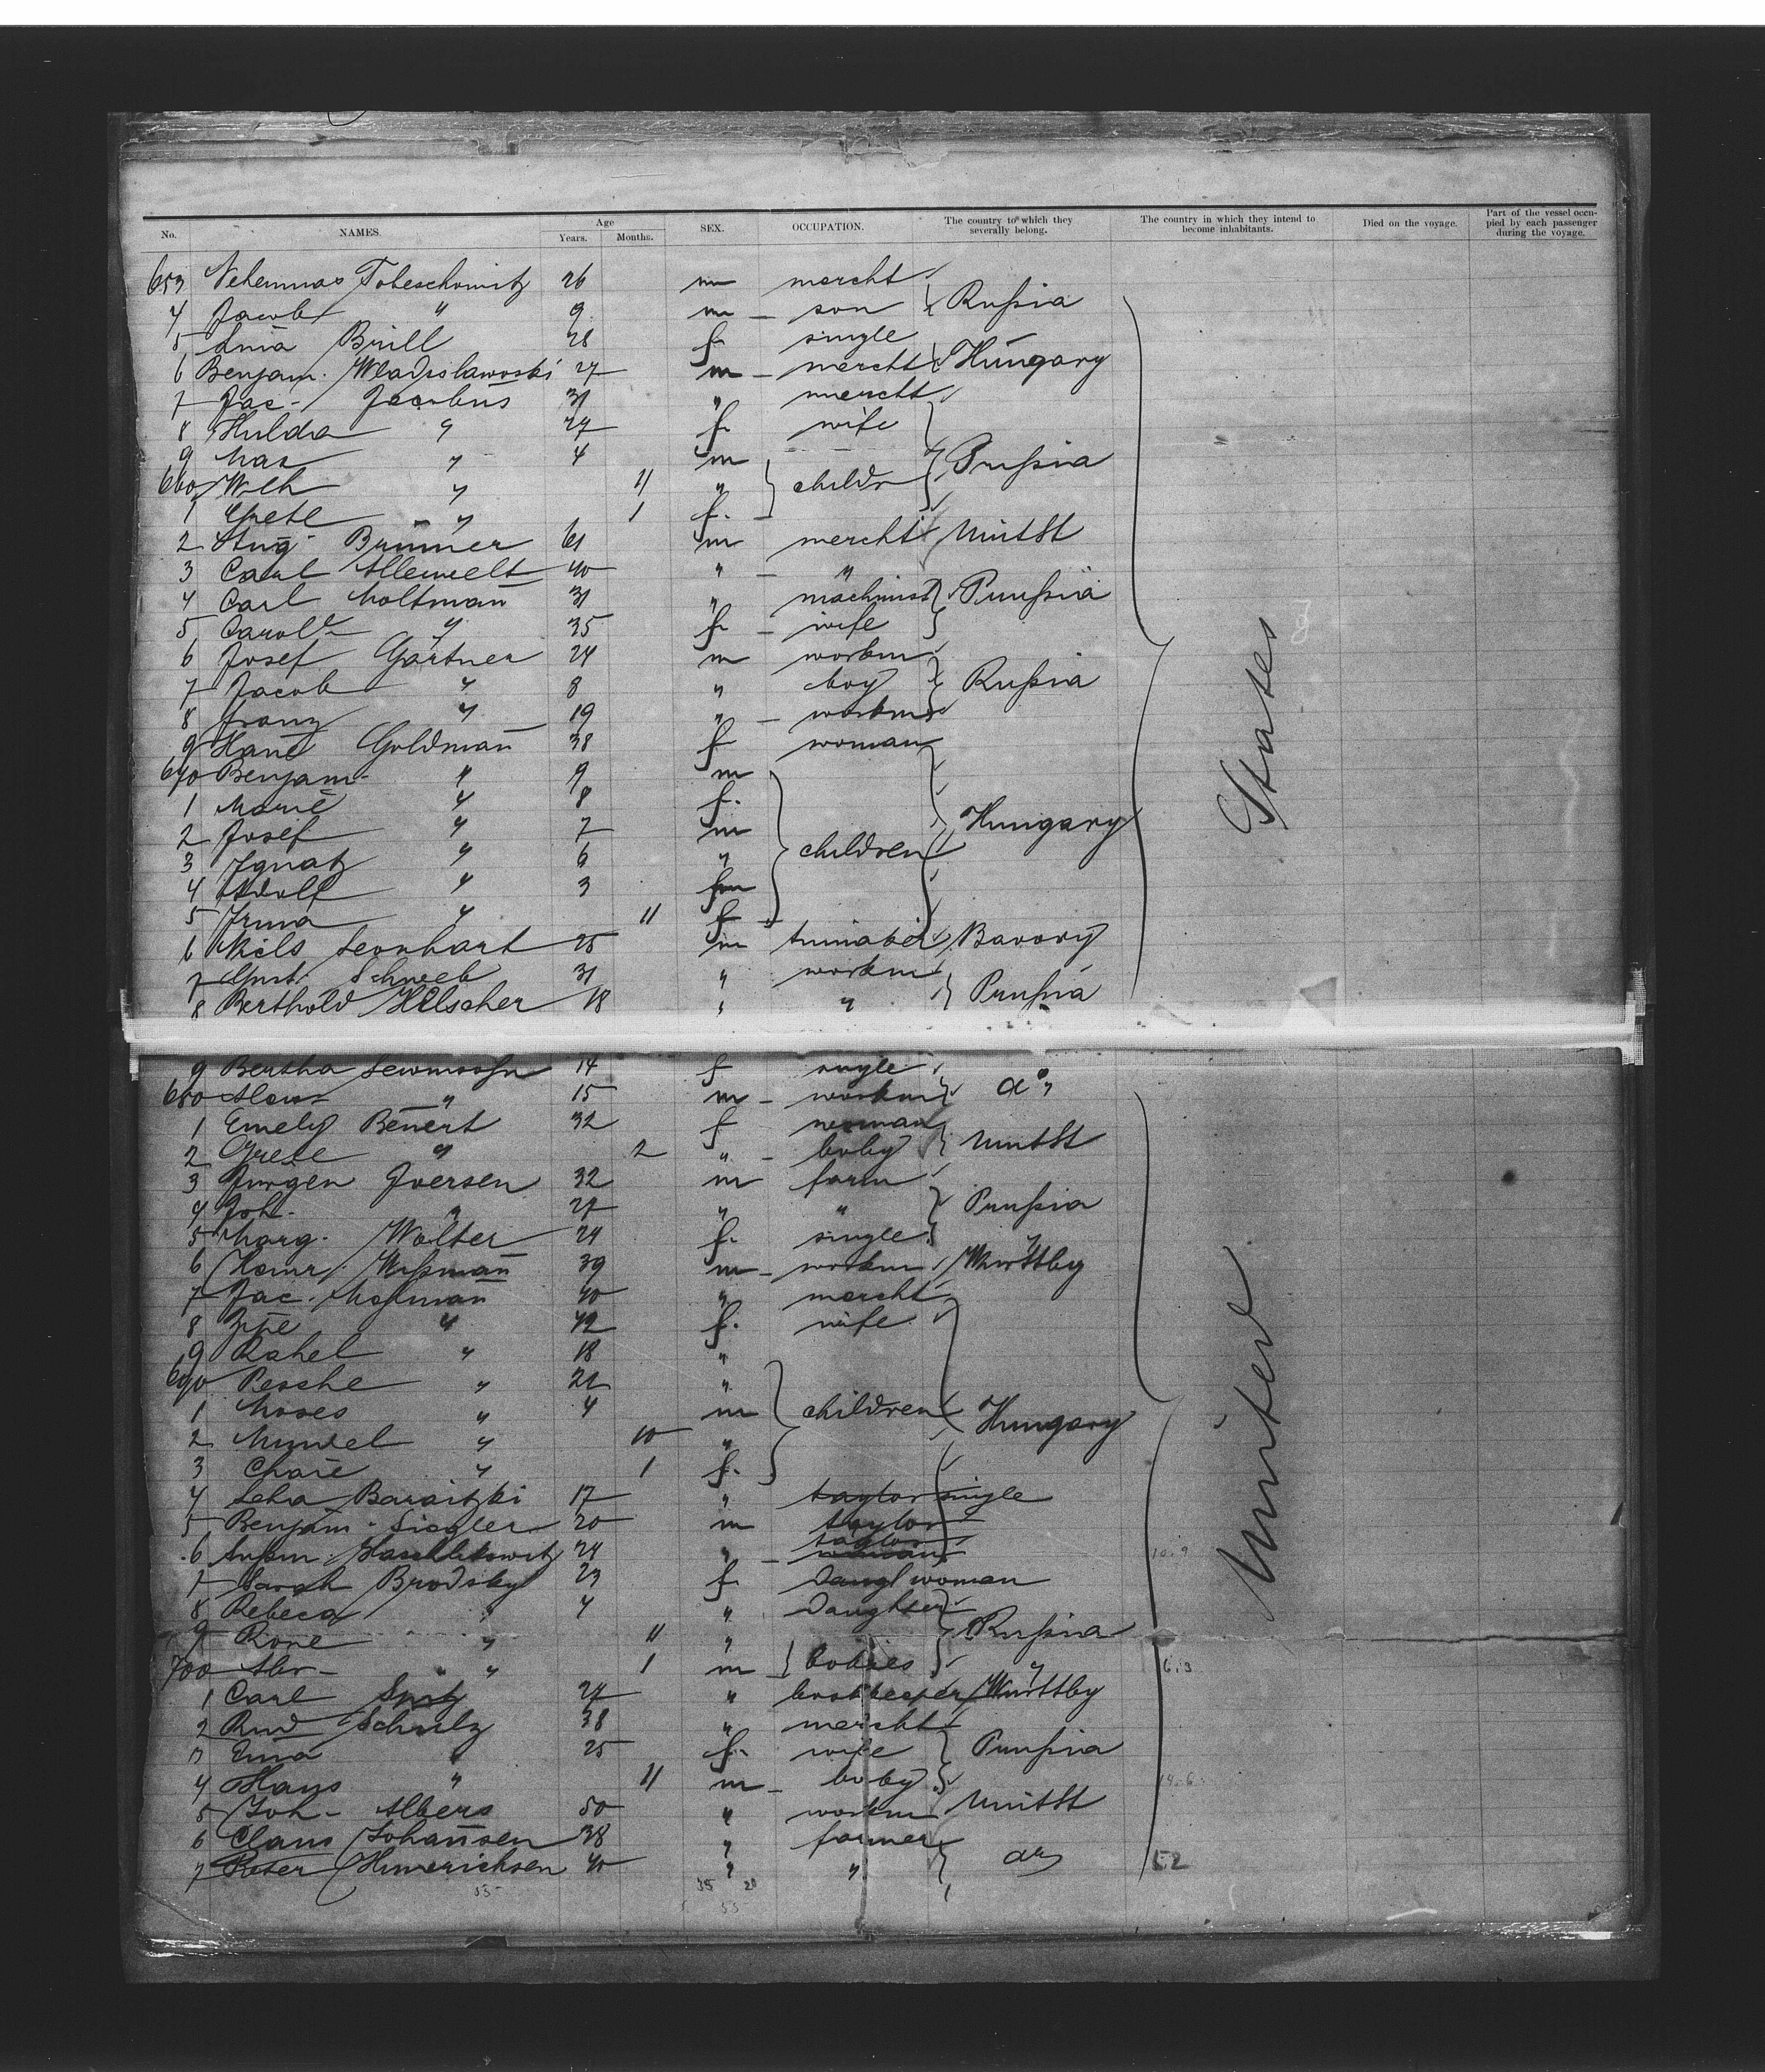 No. NAMES. Age Years. Months. SEX. OCCUPATION. The country to which they severally belong. The country in which they intend to become inhabitants. Died on the voyage. Part of the vessel occupied by each passenger during the voyage.
653 26 m mercht
4 Jacob " 9 m son Rußia
5 Brill 28 f single
6 Benjam. Wladislawoski 27 m mercht Hungary
7 Jac. Jacobus 31 " mercht
8 Hulda " 27 f wife
9 Max " 4 m
660 Wilh " 11 " childr Prußia
1 Grete " 1 f.
2 Aug. Brunner 61 m mercht UnitSt
3 Carl Allewelt 40 " "
4 Carl Moltmañ 31 " machinist Prußia
5 Carol. " 35 f wife
6 Josef Gärtner 24 m workm
7 Jacob " 8 " boy Rußia
8 Franz " 19 " workm
9 Hane Goldmañ 38 f woman
670 Benjam. " 9 m
1 Marie " 8 f.
2 Josef " 7 m Hungary
3 Ignatz " 6 " children
4 Adolf " 3 m
5 Irma " 11 f
6 Niels Leonhart 25 m
7 Gust. Schweb 31 " workm
8 Berthold Hilscher 18 " " Prußia
9 Bertha 14 f single
680 " 15 m workm do
1 Emely Beñert 32 f woman
2 Grete " 2 " baby UnitSt
3 Jürgen Iversen 32 m farm
4 Joh. " 27 " " Prußia
5 Marg. Wolter 24 f. single
6 Heinr. Wißmañ 39 m workm Württbg
7 Jac. 40 " mercht
8 " 42 f. wife
9 Rahel " 18 "
690 Pesche " 21 "
1 Moses " 4 m children Hungary
2 Mendel " 10 "
3 Chaie " 1 f.
4 Leha Baraitzki 17 " taylor single
5 Benjam. Siegler 20 m taylor
6 24 " taylor woman
7 Sarah Brodsky 23 f Daugl woman
8 Rebeca " 4 " Daughter
9 Rone " 11 " Rußia
700 Abr. " 1 m babies
1 Carl 27 " bookkeeper Württbg
2 Rud Schulz 38 " mercht
3 Ema " 25 f. wife Prußia
4 Hans " 11 m baby
5 Joh. Albers 50 " workm UnitSt
6 Claus Johañsen 38 " farmer
7 Peter Hinrichsen 40 " " do
United States